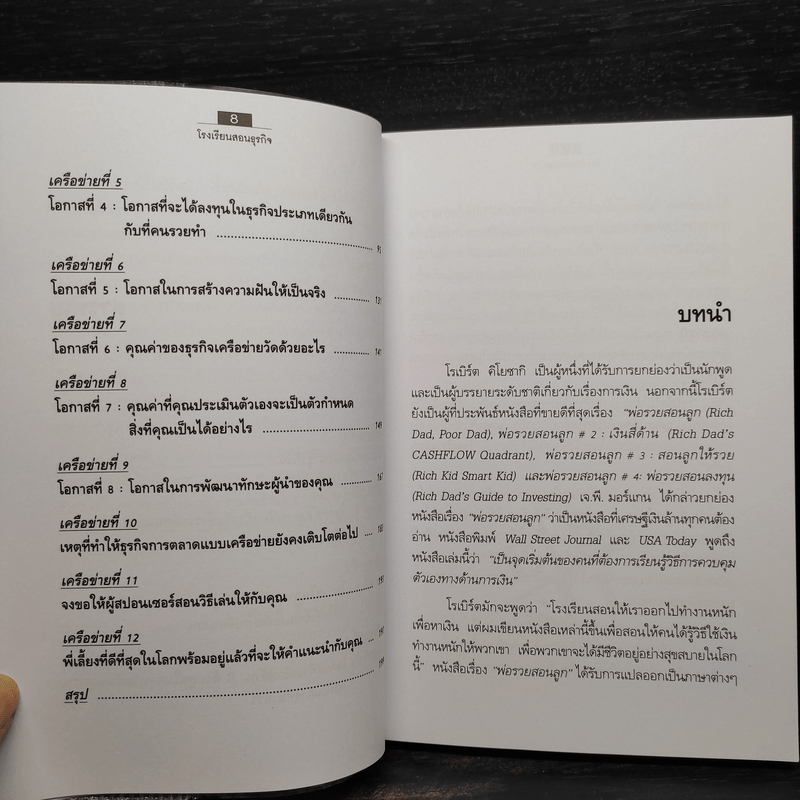 8
โรงเรียนสอนธุรกิจ
เครือข่ายที่ 5
โอกาสที่ 4 : โอกาสที่จะได้ลงทุนในธุรกิจประเภทเดียวกัน
กับที่คนรวยทำ
เครือข่ายที่ 6
โอกาสที่ 5 : โอกาสในการสร้างความฝันให้เป็นจริง
เครือข่ายที่ 7
โอกาสที่ 6 : คุณค่าของธุรกิจเครือข่ายวัดด้วยอะไร
เครือข่ายที่ 8
โอกาสที่ 7 : คุณค่าที่คุณประเมินตัวเองจะเป็นตัวกำหนด
สิ่งที่คุณเป็นได้อย่างไร ... 149
เครือข่ายที่ 9
โอกาสที่ 8 : โอกาสในการพัฒนาทักษะผู้นำของคุณ ... 167
เครือข่ายที่ 10
เหตุที่ทำให้ธุรกิจการตลาดแบบเครือข่ายยังคงเติบโตต่อไป
เครือข่ายที่ 11
จงขอให้ผู้สปอนเซอร์สอนวิธีเล่นให้กับคุณ
เครือข่ายที่ 12
พี่เลี้ยงที่ดีที่สุดในโลกพร้อมอยู่แล้วที่จะให้คำแนะนำกับคุณ ... 197
สรุป ... 199
บทนำ
โรเบิร์ต คิโยซากิ เป็นผู้หนึ่งที่ได้รับการยกย่องว่าเป็นนักพูด
และเป็นผู้บรรยายระดับชาติเกี่ยวกับเรื่องการเงิน นอกจากนี้โรเบิร์ต
ยังเป็นผู้ที่ประพันธ์หนังสือที่ขายดีที่สุดเรื่อง "พ่อรวยสอนลูก (Rich
Dad, Poor Dad), พ่อรวยสอนลูก # 2 : เงินสี่ด้าน (Rich Dad's
CASHFLOW Quadrant), พ่อรวยสอนลูก # 3 : สอนลูกให้รวย
(Rich Kid Smart Kid) และพ่อรวยสอนลูก # 4: พ่อรวยสอนลงทุน
(Rich Dad's Guide to Investing) เจ.พี. มอร์แกน ได้กล่าวยกย่อง
หนังสือเรื่อง "พ่อรวยสอนลูก" ว่าเป็นหนังสือที่เศรษฐีเงินล้านทุกคนต้อง
อ่าน หนังสือพิมพ์ Wall Street Journal และ USA Today พูดถึง
หนังสือเล่มนี้ว่า "เป็นจุดเริ่มต้นของคนที่ต้องการเรียนรู้วิธีการควบคุม
ตัวเองทางด้านการเงิน"
โรเบิร์ตมักจะพูดว่า "โรงเรียนสอนให้เราออกไปทำงานหนัก
เพื่อหาเงิน แต่ผมเขียนหนังสือเหล่านี้ขึ้นเพื่อสอนให้คนได้รู้วิธีใช้เงิน
ทำงานหนักให้พวกเขา เพื่อพวกเขาจะได้มีชีวิตอยู่อย่างสุขสบายในโลก
นี้" หนังสือเรื่อง "พ่อรวยสอนลูก" ได้รับการแปลออกเป็นภาษาต่างๆ